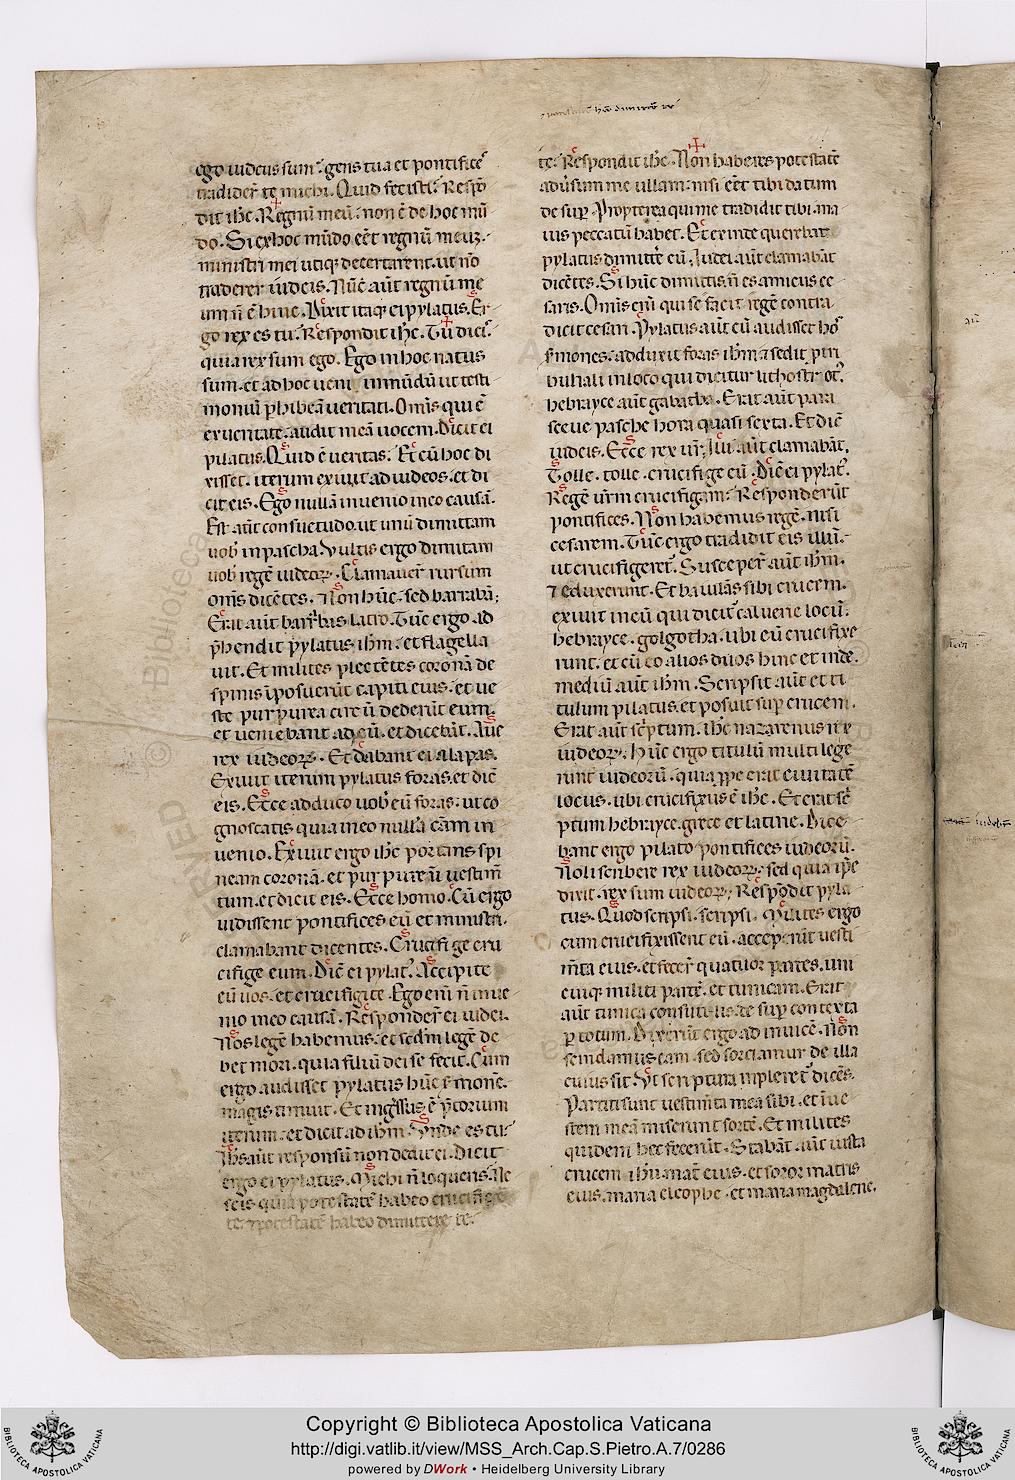 ego iudeus sum. gens tua et pontifices
tradider̄ te michi. Quid fecisti. Respō
dit ih̄c. Regnū meū. non ē de hoc mū
do. Si ex hoc mūdo eēt regnū meuꝫ.
ministri mei utiqꝫ decertarent. ut nō
traderer iudeis. Nūc aūt regnū me
um n̄ ē hinc. Dixit itaqꝫ ei pylatus. Er
go rex es tu. Respondit ih̄c. Tu dicis
quia rex sum ego. Ego in hoc natus
sum. et ad hoc ueni in mūdū ut testi
moniū phibeā ueritati. Omīs qui ē
ex ueritate. audit meā uocem. Dicit ei
pilatus. Quid ē ueritas. Et cū hoc di
xisset. iterum exiuit ad iudeos. et di
cit eis. Ego nullā inuenio in eo causā.
Est aūt consuetudo. ut unū dimittam
uob̄ in pascha. Vultis ergo dimitam
uob̄ regē iudeoꝝ. Clamauer̄ rursum
om̄s dicētes. Non hūc. sed barrabā;
Erat aūt barrabas latro. Tūc ergo ad
p̄hendit pylatus ih̄m. et flagella
uit. Et milites plectētes coronā de
spinis īposuerūt capiti eius. et ue
ste purpurea circū dederūt eum.
et ueniebant ad eū. et dicebāt. Aue
rex iudeoꝝ. Et dabant ei alapas.
Exiuit iterum pylatus foras. et dic̄
eis. Ecce adduco uob̄ eū foras. ut co
gnoscatis quia in eo nullā cām in
uenio. Exiuit ergo ih̄c portans spi
neam coronā. et purpureū uestim̄
tum. et dicit eis. Ecce homo. Cū ergo
uidissent pontifices eū et ministri.
clamabant dicentes. Crucifige cru
cifige eum. Dic̄ ei pylat᾽. Accipite
eū uos. et crucifigite. Ego eni n̄ inue
nio in eo causā. Responder̄ ei iudei.
Nos legē habemus. et sedm̄ legē de
bet mori. quia filiū dei se fecit. Cum
ergo audisset pylatus hūc s̄monē.
magis timuit. Et ingssus ē p̄torium
iterum. et dicit ad ih̄m. Vnde es tu.
Ih̄s aūt responsū non dedit ei. Dicit
ergo ei pylatus. Michi n̄ loqueris. Ne
scis quia potestatē habeo crucifigē
te. ⁊ potestatē habeo dimittere te.
te. Respondit ih̄c. Non haberes potestatē
adūsum me ullam. nisi eēt tibi datum
de sup̄. Propterea qui me tradidit tibi. ma
ius peccatū habet. Et exinde querebat
pylatus dimittē eū. Iudei aūt clamabāt
dicētes. Si hūc dimittis. n̄ es amicus ce
saris. Omīs enī qui se facit regē contra
dicit cesari. Pylatus aūt cū audisset hos
s̄mones. adduxit foras ih̄m. ⁊ sedit p̄ tri
bunali in loco qui dicitur lithostrotos.
hebrayce aūt gabatha. Erat aūt para
sceue pasche hora quasi sexta. Et dic̄
iudeis. Ecce rex ur̄. Illi aūt clamabāt.
Tolle. tolle. crucifige eū. Dic̄ ei pylat᾽.
Regē ur̄m crucifigam. Responderūt
pontifices. Non habemus regē. nisi
cesarem. Tūc ergo tradidit eis illū.
ut crucifigeret᾽. Susceper̄ aūt ih̄m.
⁊ eduxerunt. Et baiulās sibi crucem.
exiuit in eū qui dicit᾽ caluarie locū.
hebrayce. golgotha. ubi eū crucifixe
runt. et cū eo alios duos hinc et inde.
mediū aūt ih̄m. Scripsit aūt et ti
tulum pilatus. et posuit sup crucem.
Erat aūt sc̄ptum. ih̄c nazarenus rex
iudeoꝝ. Hūc ergo titulū multi lege
runt iudeorū. quia ꝓpe erat ciuitatē
locus. ubi crucifixus ē ih̄c. Et erat sc̄
ptum hebrayce. grece et latine. Dice
bant ergo pilato pontifices iudeorū.
Noli scribere rex iudeoꝝ. sed quia ip̄e
dixit. rex sum iudeoꝝ. Respōdit pyla
tus. Quod scripsi. scripsi. Milites ergo
cum crucifixissent eū. acceperūt uesti
m̄ta eius. et fecer̄ quatuor partes. uni
cuiqꝫ militi partē. et tunicam. Erat
aūt tunica consutilis. de sup̄ contexta
p totum. Dixerūt ergo ad inuicē. Non
scindamus eam. sed sorciamur de illa
cuius sit. Vt scriptura impleret᾽ dicēs.
Partiti sunt uestim̄ta mea sibi. et ī ue
stem meā miserunt sortē. Et milites
quidem hec fecerūt. Stabāt aūt iuxta
crucem ih̄u. mat̄ eius. et soror matris
eius. maria cleophe. et maria magdalene.
Copyright © Biblioteca Apostolica Vaticana
http://digi.vatlib.it/view/MSS_Arch.Cap.S.Pietro.A.7/0286
powered by DWork • Heidelberg University Library
BIBLIOTECA APOSTOLICA VATICANA
BIBLIOTECA APOSTOLICA VATICANA